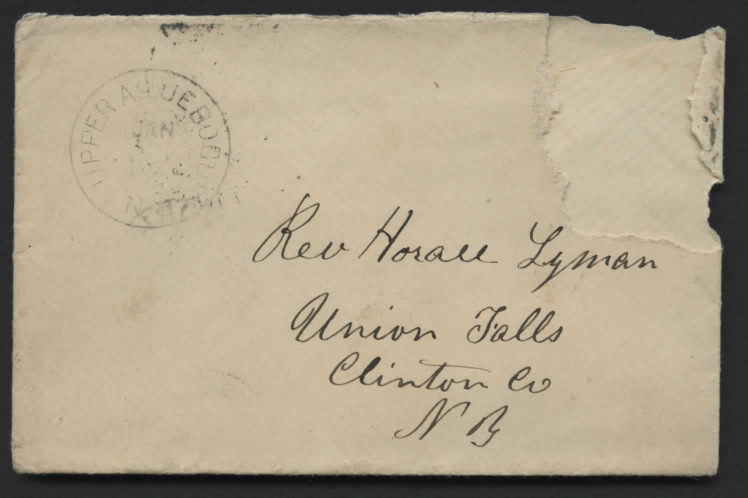 UPPER AQUEBOGUE
JAN
N.Y.
Rev Horace Lyman
Union Falls
Clinton Co
N Y